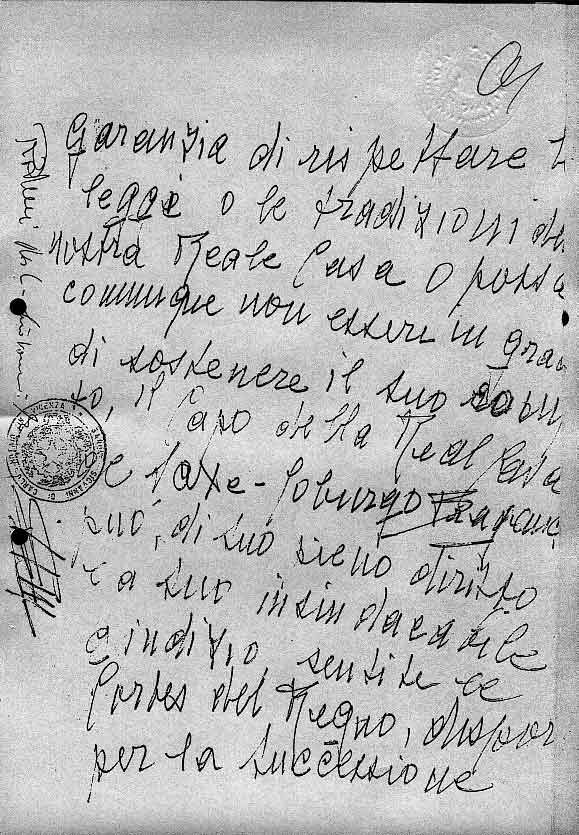 Garanzia di rispettare l
leggi o le tradizioni de
nostra Reale Casa o possa
comunque non essere in gra
di sostenere il suo
to, il Capo della Real Casa
Saxe-Coburgo
può, di suo pieno diritto
e a suo insindacabile
giudizio sentite le
Cortes del Regno, dispor
per la successione